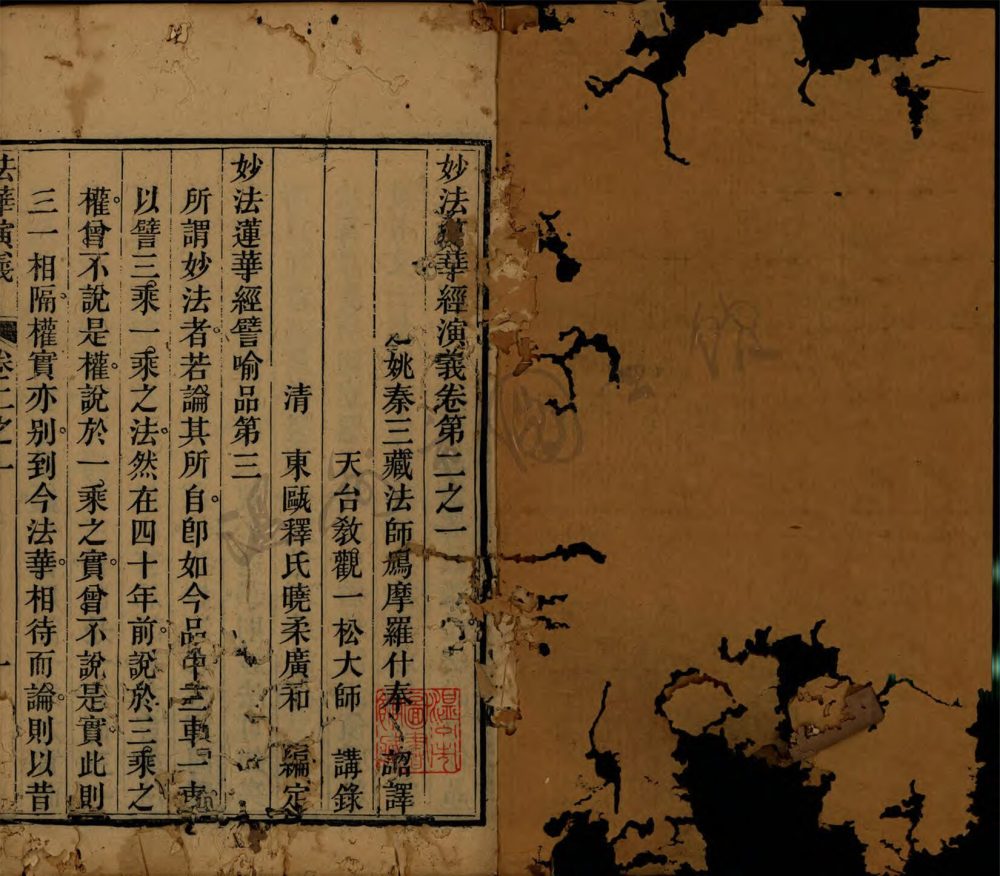 妙法蓮華經演義卷第二之一
姚秦三藏法師鳩摩羅什奉 詔譯
天台教觀一松大師 講錄
清 東甌釋氏曉柔廣和 編定
妙法蓮華經譬喻品第三
所謂妙法者。若論其所自。卽如今品中三車一
以譬三乘一乘之法。然在四十年前。說於三乘之
權。曾不說是權。說於一乘之實。曾不說是實。此則
三一相隔。權實亦別。到今法華相待而論。則以昔
法華演義 卷二之一 一